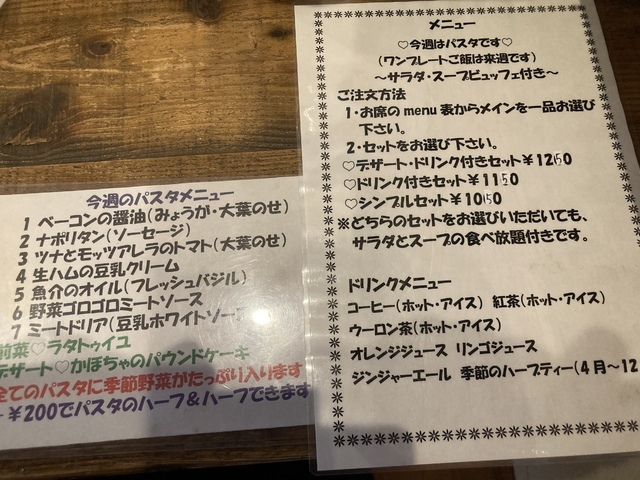 メニュー
♡今週はパスタです♡
(ワンプレートご飯は来週です)
～サラダ・スープビュッフェ付き～
ご注文方法
1・お席のmenu表からメインを一品お選び
下さい。
2・セットをお選び下さい。
♡デザート・ドリンク付きセット￥1250
♡ドリンク付きセット￥1150
♡シンプルセット￥1050
※どちらのセットをお選びいただいても、
サラダとスープの食べ放題付きです。
ドリンクメニュー
コーヒー(ホット・アイス) 紅茶(ホット・アイス)
ウーロン茶(ホット・アイス)
オレンジジュース リンゴジュース
ジンジャーエール 季節のハーブティー(4月～12
今週のパスタメニュー
1 ベーコンの醤油(みょうが・大葉のせ)
2 ナポリタン(ソーセージ)
3 ツナとモッツアレラのトマト(大葉のせ)
4 生ハムの豆乳クリーム
5 魚介のオイル(フレッシュバジル)
6 野菜ゴロゴロミートソース
7 ミートドリア(豆乳ホワイトソー
前菜♡ラタトゥイユ
デザート♡かぼちゃのパウンドケーキ
全てのパスタに季節野菜がたっぷり入ります
+￥200でパスタのハーフ＆ハーフできます